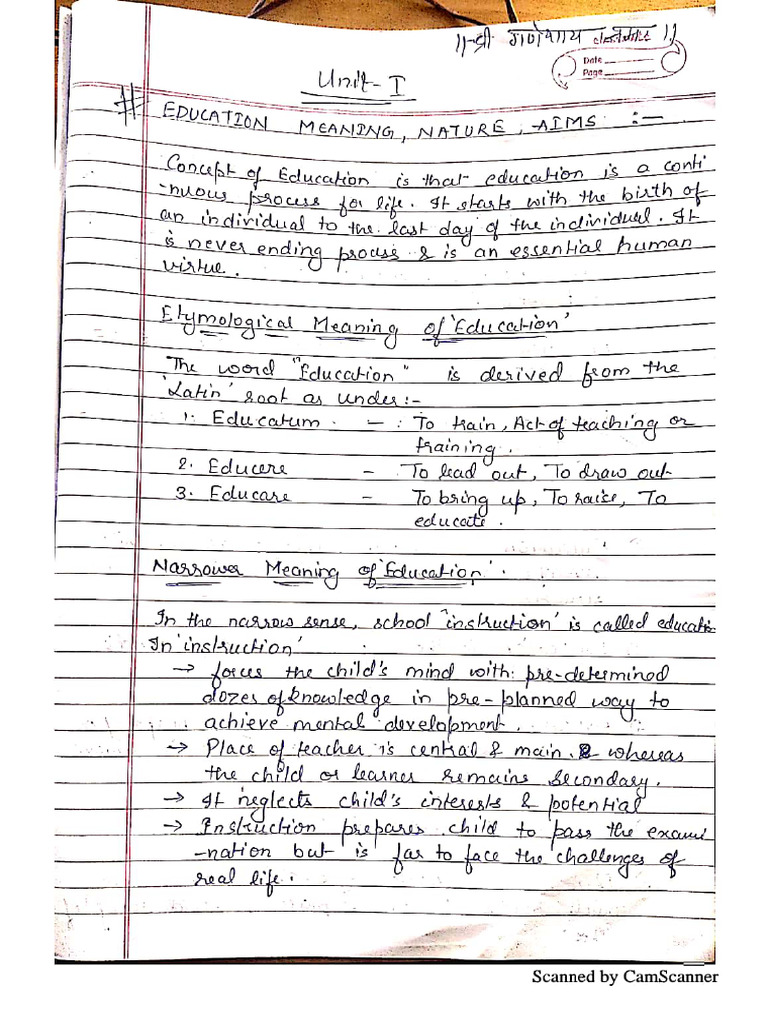 ॥ श्री गणेशाय नमः ॥
Date
Page
Unit-I
# EDUCATION MEANING, NATURE, AIMS :-
Concept of Education is that education is a conti
-nuous process for life. It starts with the birth of
an individual to the last day of the individual. It
is never ending process & is an essential human
virtue.
Etymological Meaning of 'Education'
The word "Education" is derived from the
'Latin' root as under:-
1. Educatum. - : To train, Act of teaching or
training.
2. Educere - To lead out, To draw out
3. Educare - To bring up, To raise, To
educate.
Narrower Meaning of 'Education'.
In the narrow sense, school 'instruction' is called educatio
In 'instruction'
→ forces the child's mind with: pre-determined
dozes of knowledge in pre-planned way to
achieve mental development.
→ Place of teacher is central & main & whereas
the child or learner remains secondary.
→ It neglects child's interests & potential
→ Instruction prepares child to pass the exami
-nation but is far to face the challenges of
real life.
Scanned by CamScanner